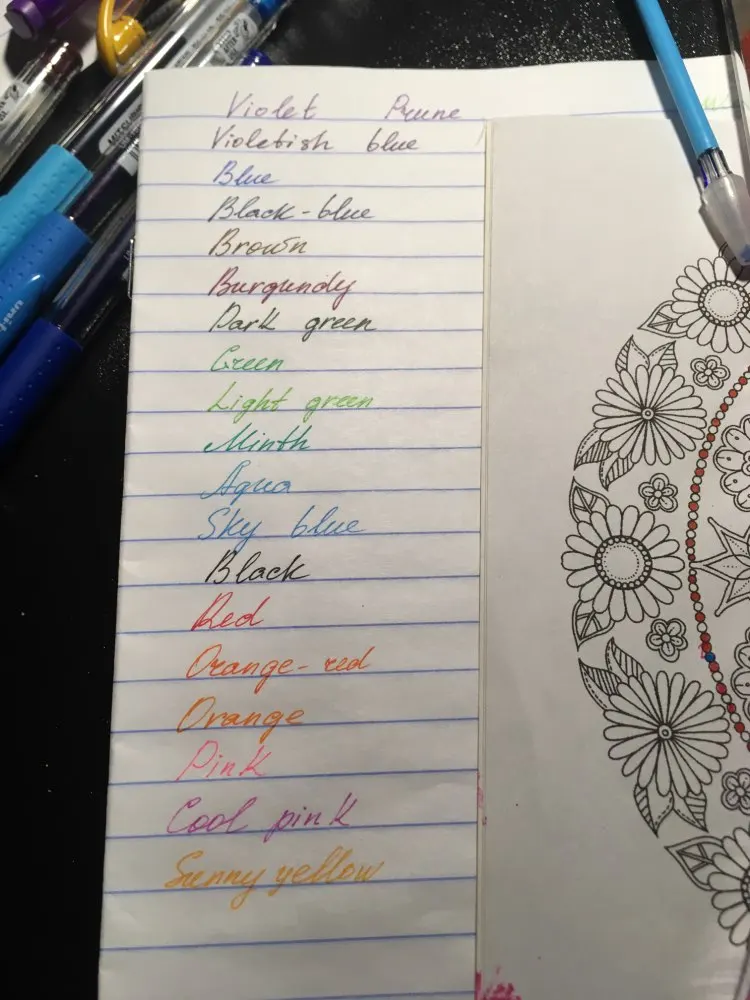 Violet Prune
Violetish blue
Blue
Black-blue
Brown
Burgundy
Dark green
Green
Light green
Minth
Aqua
Sky blue
Black
Red
Orange-red
Orange
Pink
Cool pink
Sunny yellow
uni